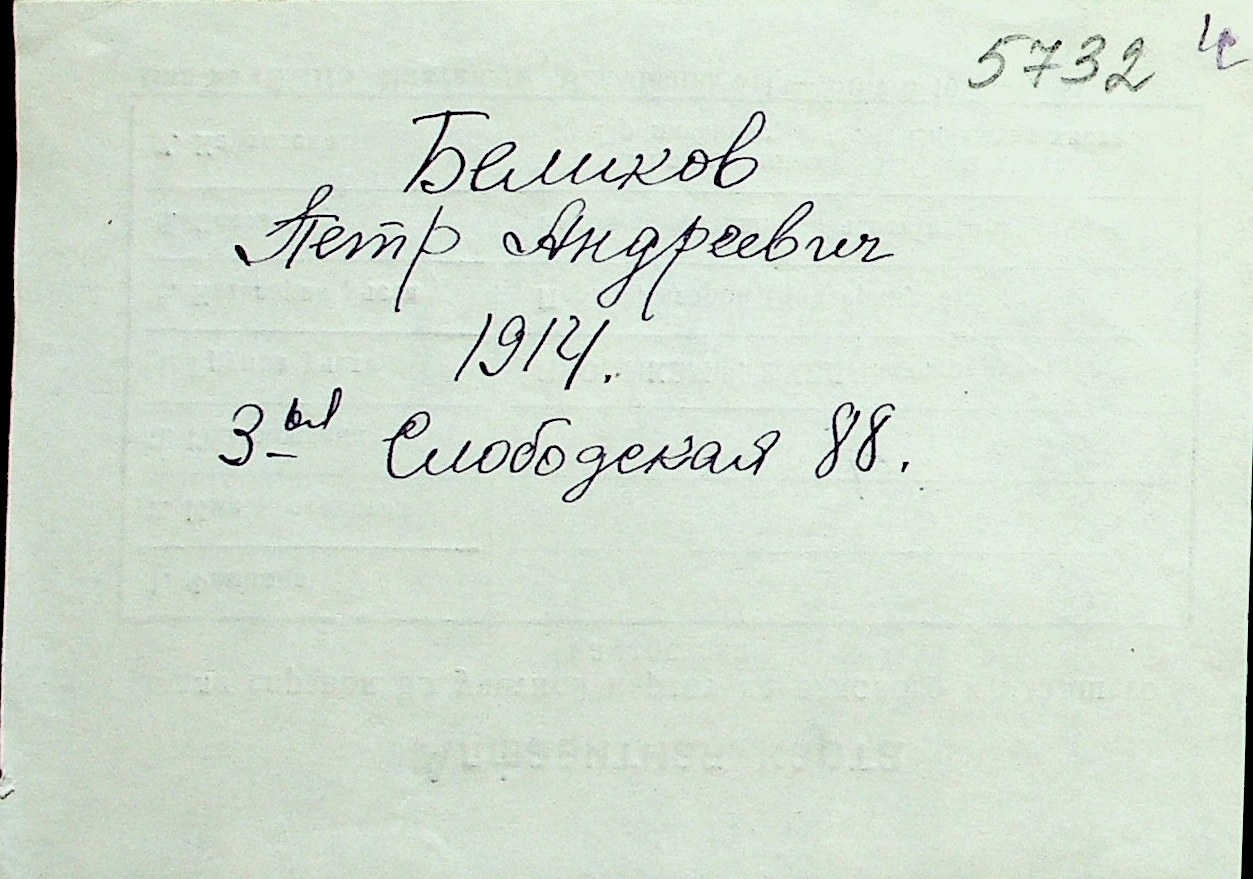 5732 4
Беликов
Петр Андреевич
1914.
3-ья Слободская 88.